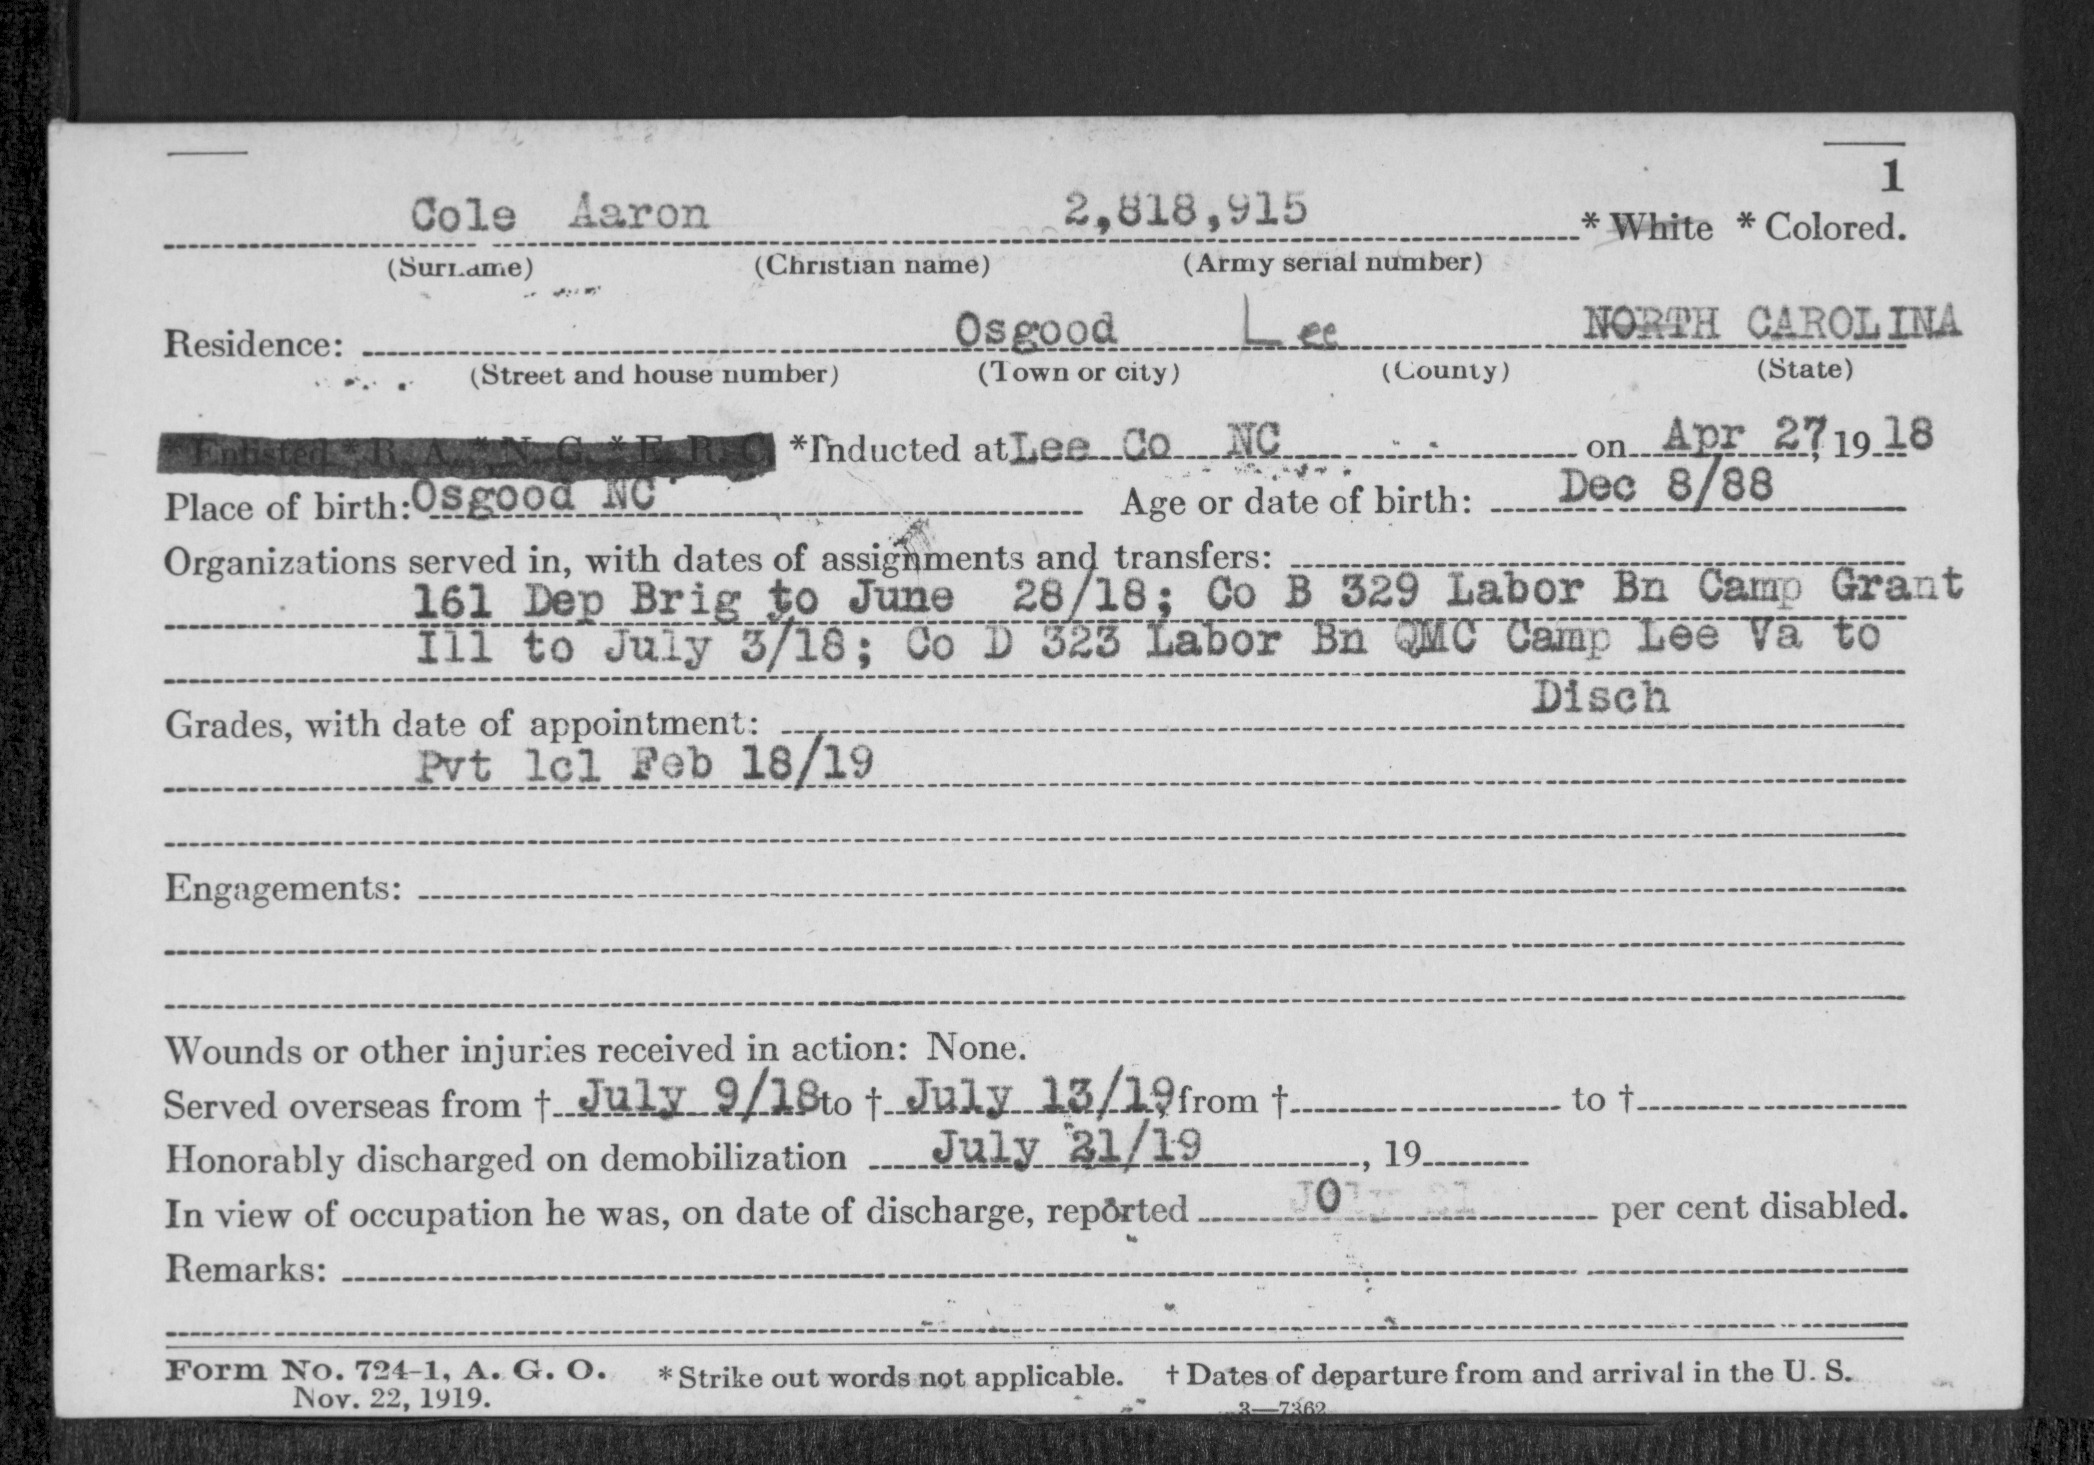 1
Cole Aaron 2,818,915 * White * Colored.
(Surname) (Christian name) (Army serial number)
Residence: Osgood Lee NORTH CAROLINA
(Street and house number) (Town or city) (County) (State)
* Enlisted * R. A. * N. G. * E. R. C. *Inducted at Lee Co NC on Apr 27, 19 18
Place of birth: Osgood NC Age or date of birth: Dec 8/88
Organizations served in, with dates of assignments and transfers:
161 Dep Brig to June 28/18; Co B 329 Labor Bn Camp Grant
Ill to July 3/18; Co D 323 Labor Bn QMC Camp Lee Va to
Disch
Grades, with date of appointment:
Pvt 1cl Feb 18/19
Engagements:
Wounds or other injuries received in action: None.
Served overseas from † July 9/18 to † July 13/19, from † to †
Honorably discharged on demobilization July 21/19, 19
In view of occupation he was, on date of discharge, reported 0 per cent disabled.
Remarks:
Form No. 724-1, A. G. O. * Strike out words not applicable. † Dates of departure from and arrival in the U. S.
Nov. 22, 1919. 3—7362